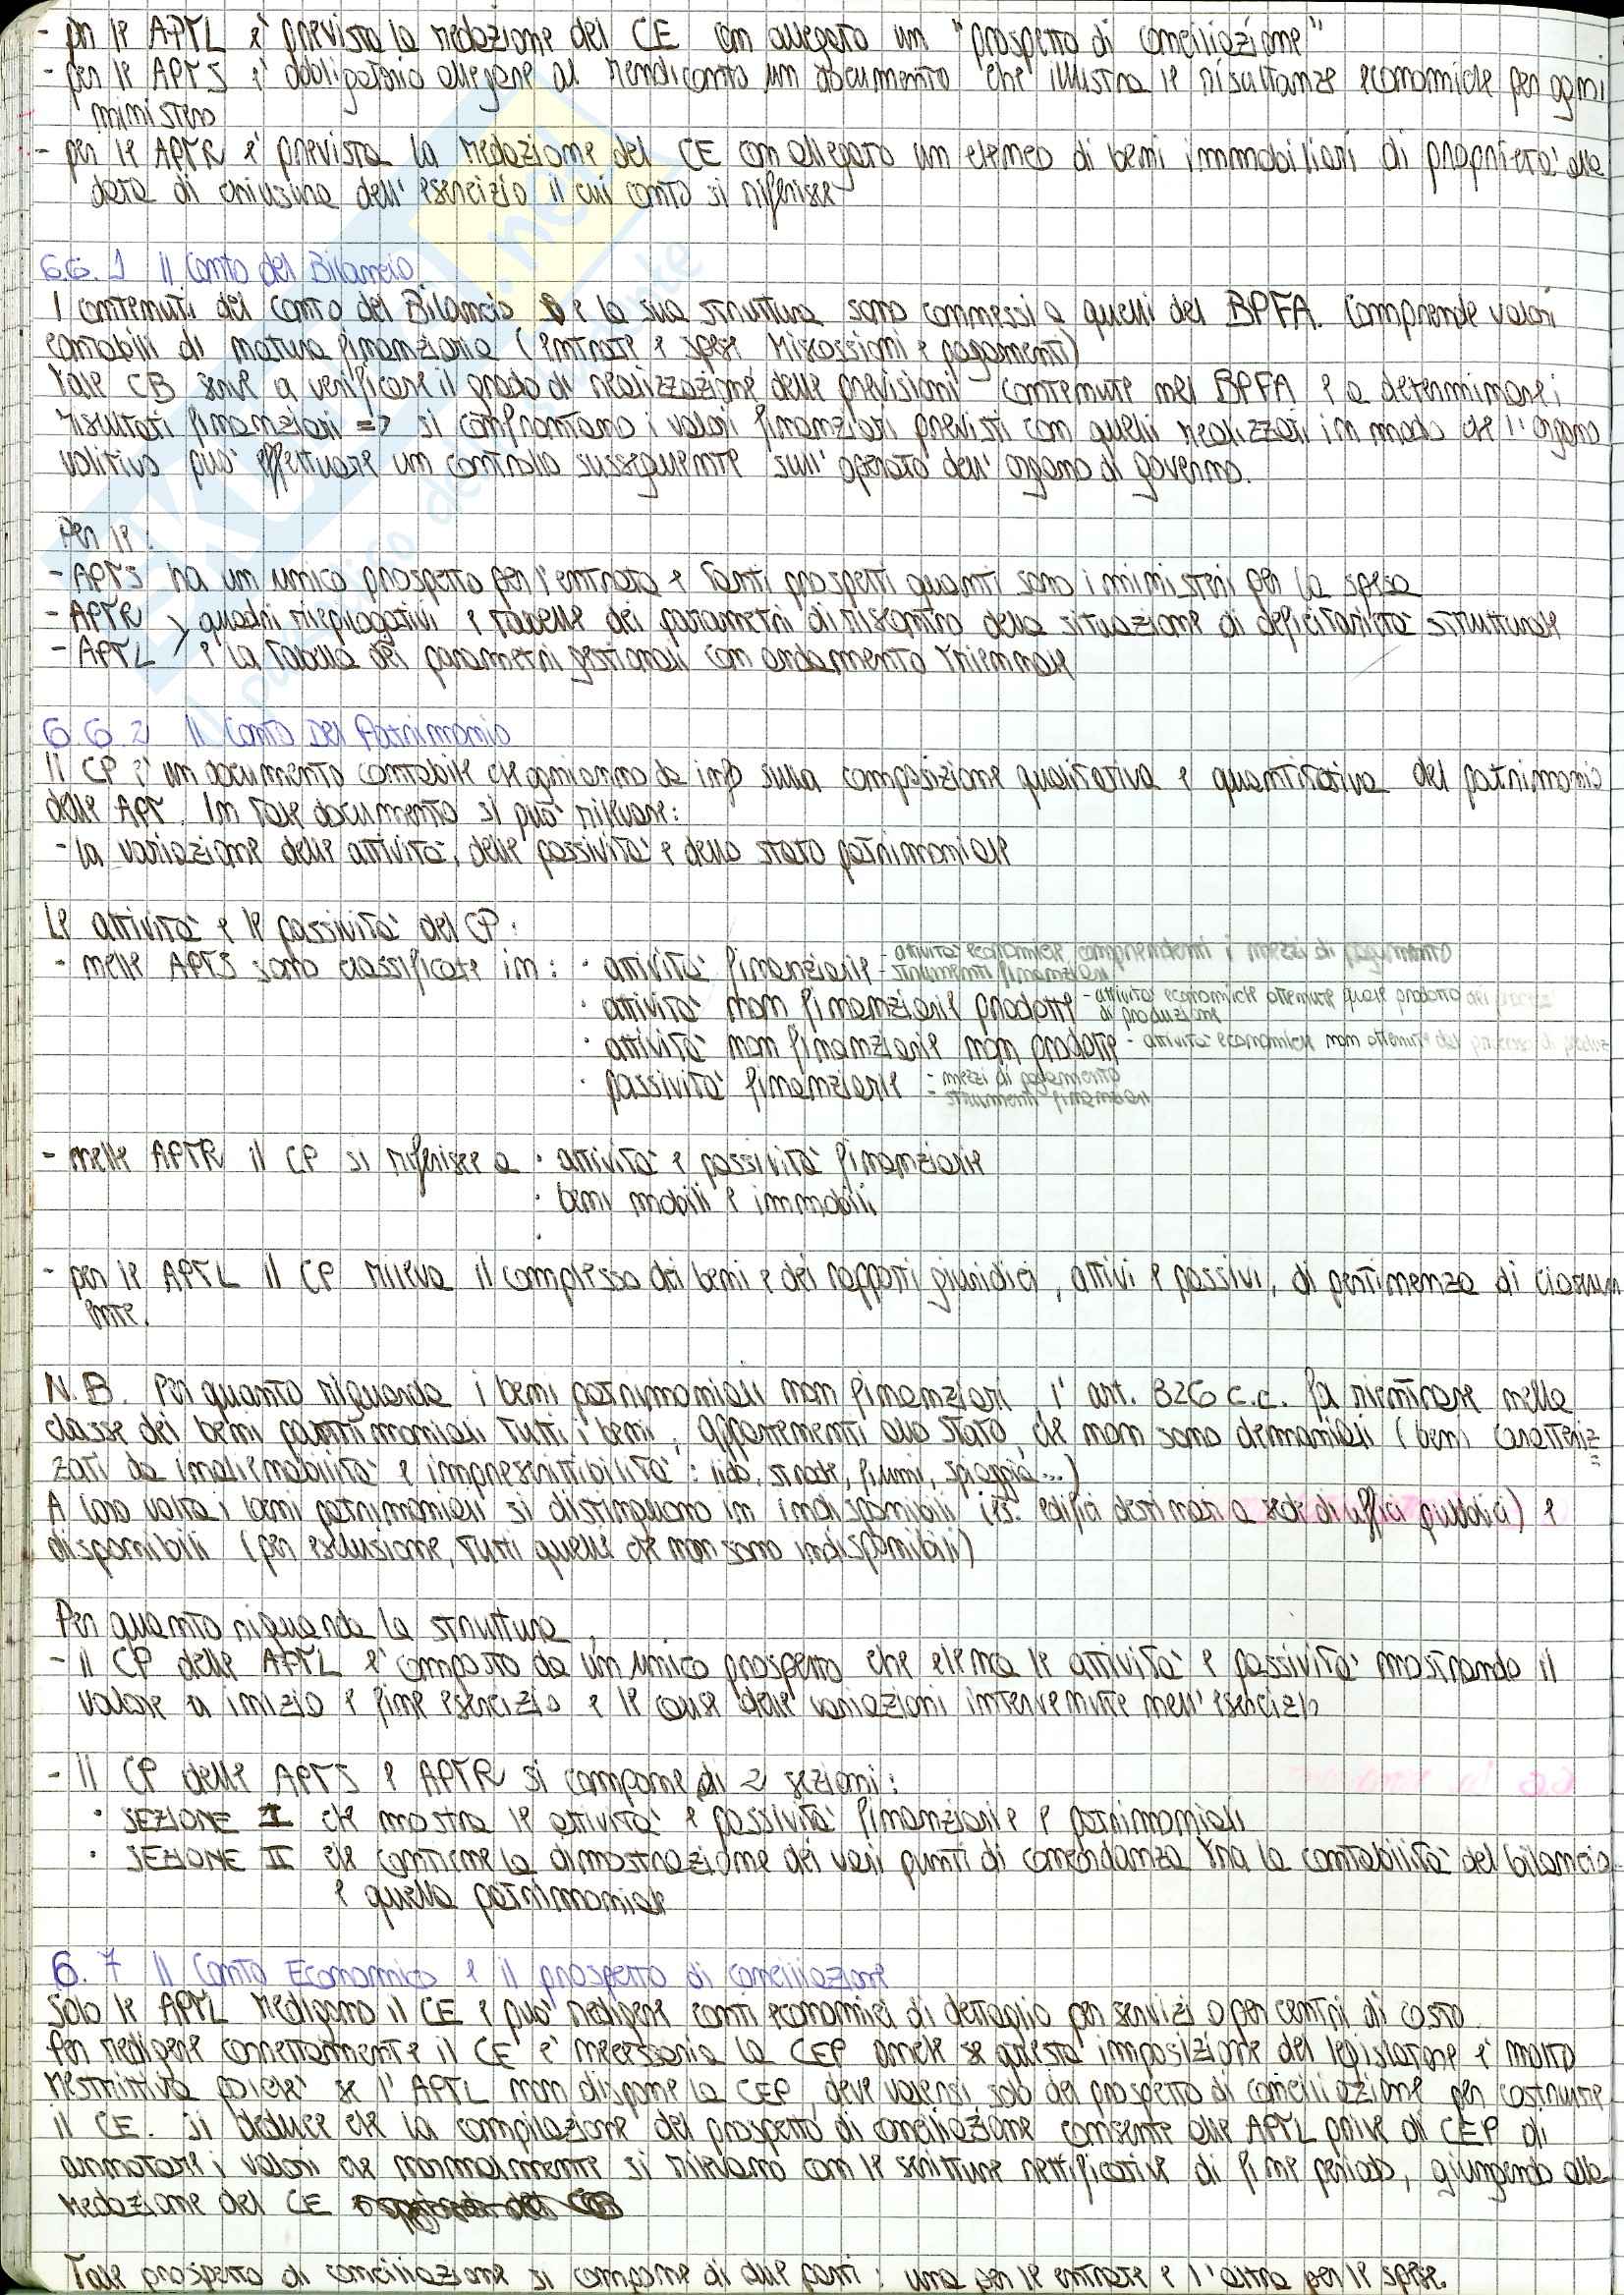 - per le APTL è prevista la redazione del CE con allegato un "prospetto di conciliazione"
- per le APTS è obbligatorio allegare al rendiconto un documento che illustra le risultanze economiche per ogni
ministero
- per le APTR è prevista la redazione del CE con allegato un elenco di beni immobiliari di proprietà alla
data di chiusura dell'esercizio il cui conto si riferisce
6.6.1 Il Conto del Bilancio
I contenuti del Conto del Bilancio e la sua struttura sono connessi a quelli del BPFA. Comprende valori
contabili di natura finanziaria (entrate e spese riscossioni e pagamenti)
Tale CB serve a verificare il grado di realizzazione delle previsioni contenute nel BPFA e a determinare i
risultati finanziari => si confrontano i valori finanziari previsti con quelli realizzati in modo che l'organo
volitivo può effettuare un controllo susseguente sull'operato dell'organo di governo.
Per le:
- APTS ha un unico prospetto per l'entrata e tanti prospetti quanti sono i ministeri per la spesa
- APTR > quadri riepilogativi e tabelle dei parametri di riscontro della situazione di deficitarietà strutturale
- APTL > e la tabella dei parametri gestionali con andamento triennale
6.6.2 Il Conto Del Patrimonio
Il CP è un documento contabile che ogni anno da info sulla composizione qualitativa e quantitativa del patrimonio
delle APT. In tale documento si può rilevare:
- la variazione delle attività, delle passività e dello stato patrimoniale
Le attività e le passività del CP:
- nelle APTS sono classificate in: · attività finanziarie - attività economiche comprendenti i mezzi di pagamento
- strumenti finanziari
· attività non finanziarie prodotte - attività economiche ottenute quale prodotto dei processi
di produzione
· attività non finanziarie non prodotte - attività economiche non ottenute dal processo di
· passività finanziarie - mezzi di pagamento
- strumenti finanziari
- nelle APTR il CP si riferisce a · attività e passività finanziarie
· beni mobili e immobili
·
- per le APTL il CP rileva il complesso dei beni e dei rapporti giuridici, attivi e passivi, di pertinenza di ciascun
ente.
N.B. Per quanto riguarda i beni patrimoniali non finanziari, l'art. 826 c.c. fa rientrare nella
classe dei beni patrimoniali tutti i beni, appartenenti allo stato, che non sono demaniali (beni caratteriz=
zati da inalienabilità e imprescrittibilità: lido, strade, fiumi, spiaggia...)
A loro volta i beni patrimoniali si distinguono in indisponibili (es. edifici destinati a sede di uffici pubblici) e
disponibili (per esclusione, tutti quelli che non sono indisponibili)
Per quanto riguarda la struttura
- il CP delle APTL è composto da un unico prospetto che elenca le attività e passività mostrando il
valore a inizio e fine esercizio e le cause delle variazioni intervenute nell'esercizio
- Il CP delle APTS e APTR si compone di 2 sezioni:
· SEZIONE I che mostra le attività e passività finanziarie e patrimoniali
· SEZIONE II che contiene la dimostrazione dei vari punti di concordanza tra la contabilità del bilancio
e quella patrimoniale
6.7 Il Conto Economico e il prospetto di conciliazione
Solo le APTL redigono il CE e può redigere conti economici di dettaglio per servizi o per centri di costo.
Per redigere correttamente il CE è necessaria la CEP anche se questa imposizione del legislatore è molto
restrittiva poiché se l'APTL non dispone la CEP, deve valersi solo del prospetto di conciliazione per costruire
il CE. Si deduce che la compilazione del prospetto di conciliazione consente alle APTL prive di CEP di
annotare i valori che normalmente si rilevano con le scritture rettificative di fine periodo, giungendo alla
redazione del CE
Tale prospetto di conciliazione si compone di due parti: una per le entrate e l'altra per le spese.